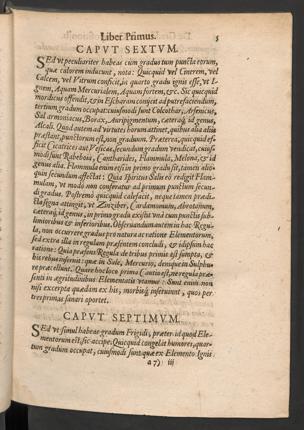 Liber Primus. 5
CAPVT SEXTVM.
SEd vt peculiariter habeas cum gradus tum puncta eorum,
quæ calorem inducunt, nota: Quicquid vel Cinerem, vel
Calcem, vel Vitrum conficit, in quarto gradu ignis esse, vt I-
gnem, Aquam Mercurialem, Aquam fortem, &c. Sic quicquid
mordicus offendit, & in Escharam conijcit ad putrefaciendum,
tertium gradum occupat: cuiusmodi sunt Colcothar, Arsenicus,
Sal armoniacus, Borax, Auripigmentum, cæteraq́; id genus,
Alcali. Quod autem ad virtutes horum attinet, quibus alia alijs
præstant, punctorum est, non graduum. Præterea, quicquid ef-
ficit Cicatrices aut Vesicas, secundum gradum vendicat, cuius-
modi sunt Rabeboia, Cantharides, Flammula, Melona, & id
genus alia. Flammula enim etsi in primo gradu sit, tamen alio-
quin secundum affectat: Quia Spiritus Salis eò redegit Flam-
mulam, vt modo non conferatur ad primum punctum secun-
di gradus. Postremo quicquid calefacit, neque tamen prædi-
cta segnis attingit, vt Zingiber, Cardamomum, Abrotonum,
cæteraq́; id genus, in primo gradu existit vnà cum punctis sub-
limioribus & inferioribus. Observandum autem in hac Regu-
la, non occurrere gradus puncta ac ratione Elementorum,
sed extra illa in regulam præsentem concludi, & id ipsum hac
ratione: Quia præsens Regula de tribus primis est sumpta, &
his rebus infunditur: quæ in Sole, Mercurio, denique in Sulphu-
re præcellunt. Quare hoc loco primo Cantio est, ne regula præ-
senti in ægritudinibus Elementatis vtamur: Sunt enim non
nisi exceptæ quædam ex his, morbiq́; inseruiunt, quos per
tres primas sanari oportet.
CAPVT SEPTIMVM.
SEd vt simul habeas gradum Frigidi, præter id quod Ele-
mentorum est, sic accipe: Quicquid congelat humores, quar-
tum gradum occupat, cuiusmodi sunt quæ ex Elemento Ignis
a 7) iij